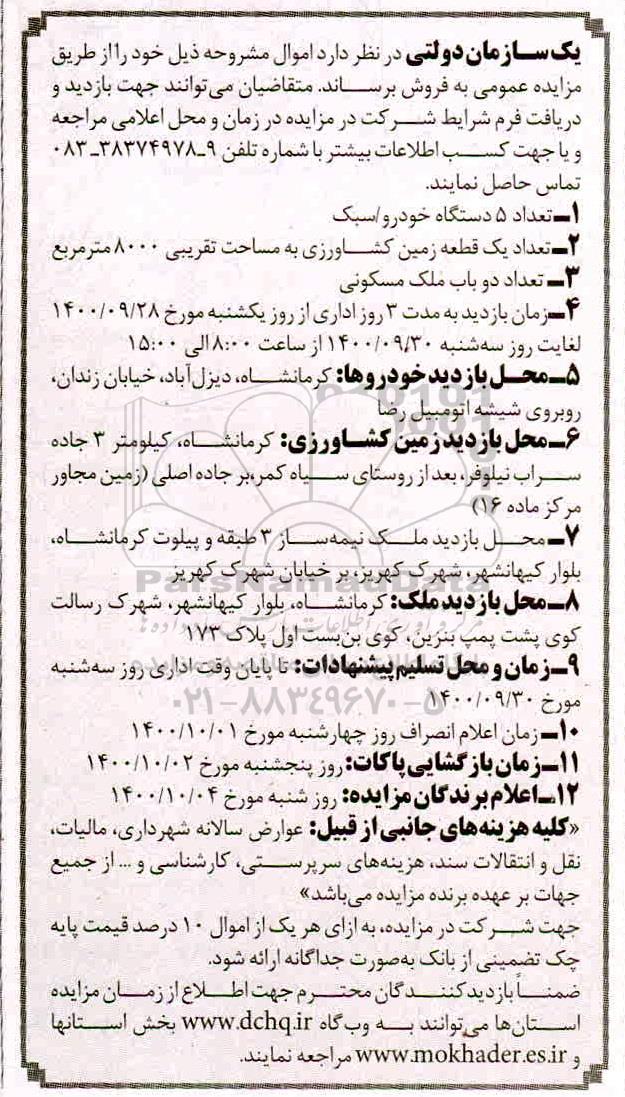 یک سازمان دولتی در نظر دارد اموال مشروحه ذیل خود را از طریق
مزایده عمومی به فروش برساند. متقاضیان می‌توانند جهت بازدید و
دریافت فرم شرایط شرکت در مزایده در زمان و محل اعلامی مراجعه
و یا جهت کسب اطلاعات بیشتر با شماره تلفن ۹ـ۳۸۳۷۴۹۷۸ـ۰۸۳
تماس حاصل نمایند.
۱ـ تعداد ۵ دستگاه خودرو/سبک
۲ـ تعداد یک قطعه زمین کشاورزی به مساحت تقریبی ۸۰۰۰ مترمربع
۳ـ تعداد دو باب ملک مسکونی
۴ـ زمان بازدید به مدت ۳ روز اداری از روز یکشنبه مورخ ۱۴۰۰/۰۹/۲۸
لغایت روز سه‌شنبه ۱۴۰۰/۰۹/۳۰ از ساعت ۸:۰۰ الی ۱۵:۰۰
۵ـ محل بازدید خودروها: کرمانشاه، دیزل‌آباد، خیابان زندان،
روبروی شیشه اتومبیل رضا
۶ـ محل بازدید زمین کشاورزی: کرمانشاه، کیلومتر ۳ جاده
سراب نیلوفر، بعد از روستای سیاه کمر، بر جاده اصلی (زمین مجاور
مرکز ماده ۱۶)
۷ـ محل بازدید ملک نیمه‌ساز ۳ طبقه و پیلوت کرمانشاه،
بلوار کیهانشهر، شهرک کهریز، بر خیابان شهرک کهریز
ParsNamadData
۸ـ محل بازدید ملک: کرمانشاه، بلوار کیهانشهر، شهرک رسالت
کوی پشت پمپ بنزین، کوی بن‌بست اول پلاک ۱۷۳
۹ـ زمان و محل تسلیم پیشنهادات: تا پایان وقت اداری روز سه‌شنبه
مورخ ۱۴۰۰/۰۹/۳۰
۰۲۱-۸۸۳۴۹۶۷۰-۵
۱۰ـ زمان اعلام انصراف روز چهارشنبه مورخ ۱۴۰۰/۱۰/۰۱
۱۱ـ زمان بازگشایی پاکات: روز پنجشنبه مورخ ۱۴۰۰/۱۰/۰۲
۱۲ـ اعلام برندگان مزایده: روز شنبه مورخ ۱۴۰۰/۱۰/۰۴
«کلیه هزینه‌های جانبی از قبیل: عوارض سالانه شهرداری، مالیات،
نقل و انتقالات سند، هزینه‌های سرپرستی، کارشناسی و ... از جمیع
جهات بر عهده برنده مزایده می‌باشد»
جهت شرکت در مزایده، به ازای هر یک از اموال ۱۰ درصد قیمت پایه
چک تضمینی از بانک به‌صورت جداگانه ارائه شود.
ضمناً بازدیدکنندگان محترم جهت اطلاع از زمان مزایده
استان‌ها می‌توانند به وب‌گاه www.dchq.ir بخش استانها
و www.mokhader.es.ir مراجعه نمایند.